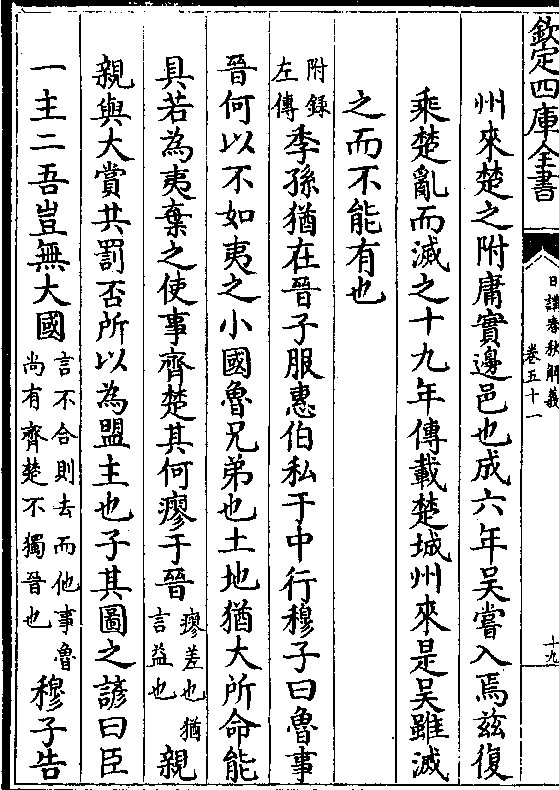 欽定四庫全書
日講春秋解義
卷五十一
十九
州來楚之附庸實邊邑也成六年吳嘗入焉兹復
乘楚亂而滅之十九年傳載楚城州來是吳雖滅
之而不能有也
附録
左傳
季孫猶在晉子服惠伯私于中行穆子曰魯事
晉何以不如夷之小國魯兄弟也土地猶大所命能
具若為夷棄之使事齊楚其何瘳于晉
瘳差也猶
言益也
親
親與大賞共罰否所以為盟主也子其圖之諺曰臣
一主二吾豈無大國
言不合則去而他事魯
尚有齊楚不獨晉也
穆子告